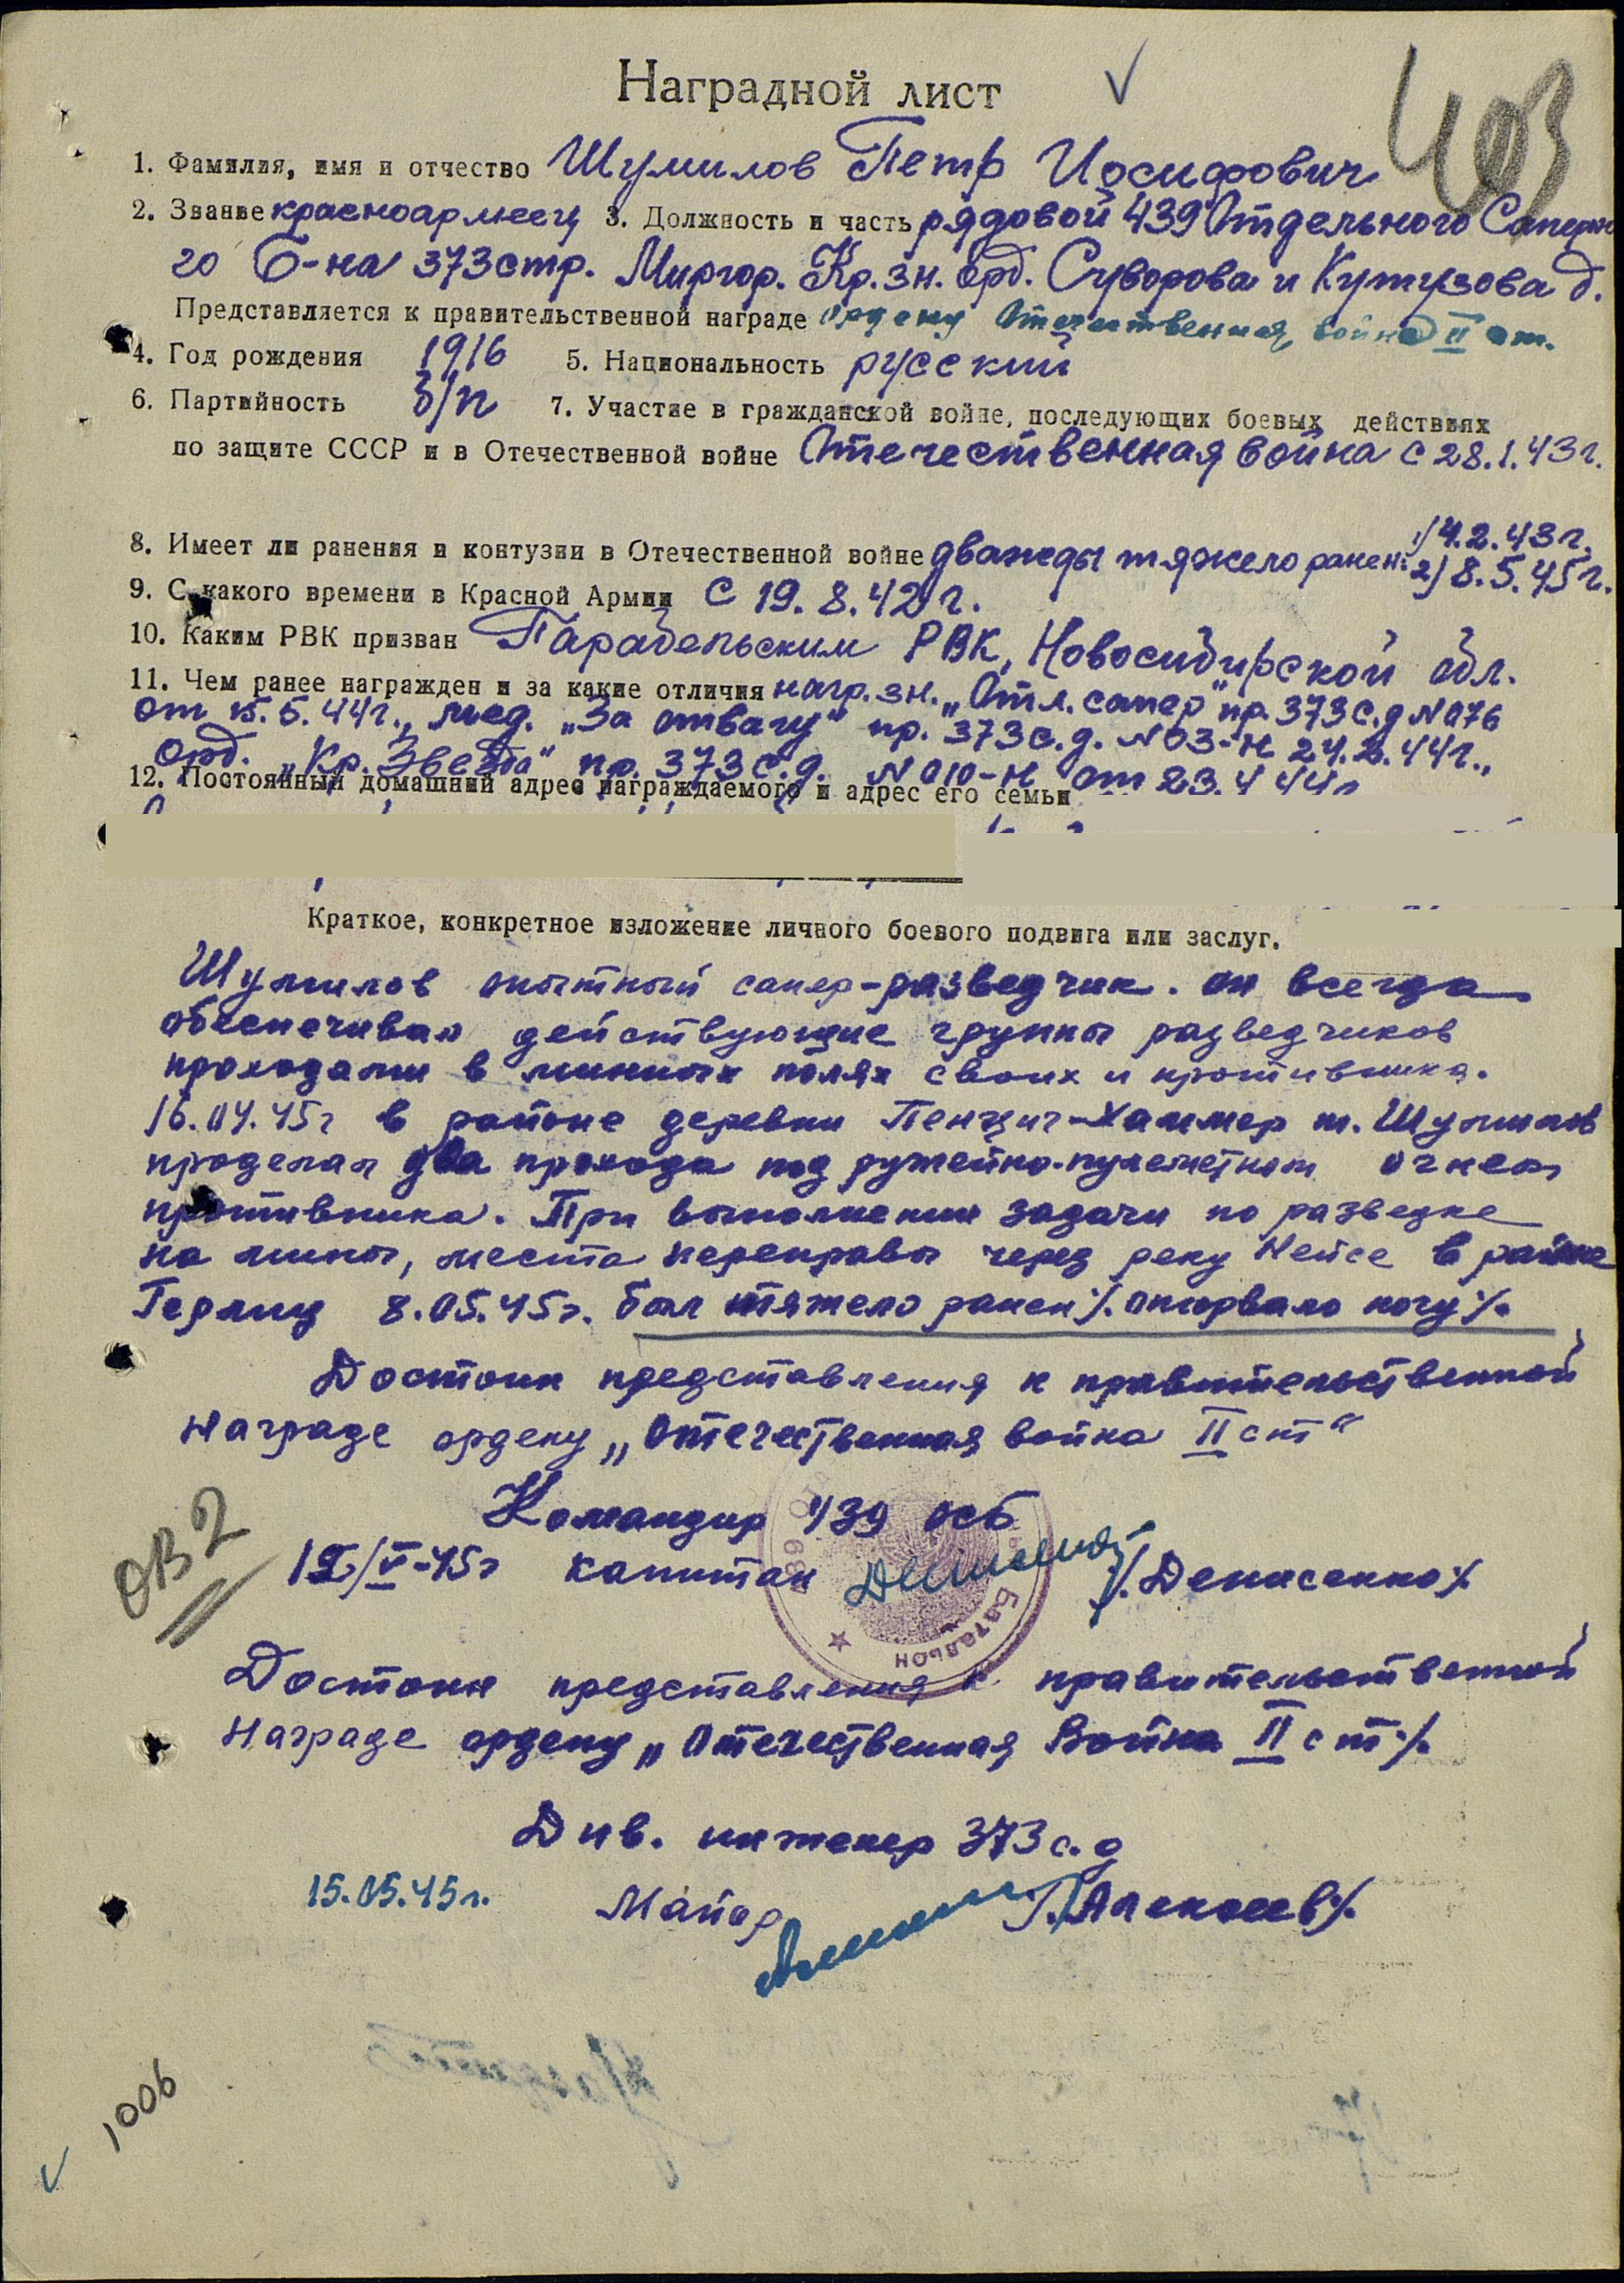 Наградной лист
403
1. Фамилия, имя и отчество Шумилов Петр Иосифович
2. Звание красноармеец 3. Должность и часть рядовой 439 Отдельного Саперно
го Б-на 373 стр. Миргор. Кр. Зн. Орд. Суворова и Кутузова д.
Представляется к правительственной награде ордену Отечественная война II ст.
4. Год рождения 1916 5. Национальность русский
6. Партийность б/п 7. Участие в гражданской войне, последующих боевых действиях
по защите СССР и в Отечественной войне Отечественная война с 28.1.43г.
8. Имеет ли ранения и контузии в Отечественной войне дважды тяжело ранен: 1) 4.2.43г.
2) 8.5.45г.
9. С какого времени в Красной Армии с 19.8.42г.
10. Каким РВК призван Парабельским РВК, Новосибирской обл.
11. Чем ранее награжден и за какие отличия нагр. зн. „Отл. сапер" пр. 373 с.д N 076
от 15.5.44г., мед. „За отвагу" пр. 373 с.д. N 03-н 24.2.44г.,
орд. „Кр. Звезда" пр. 373 с.д. N 010-н от 23.4.44г
12. Постоянный домашний адрес награждаемого и адрес его семьи
Краткое, конкретное изложение личного боевого подвига или заслуг.
Шумилов опытный сапер-разведчик. Он всегда
обеспечивал действующие группы разведчиков
проходами в минных полях своих и противника.
16.04.45г в районе деревни Пенциг-Хаммер т. Шумилов
проделал два прохода под ружейно-пулеметном огнем
противника. При выполнении задачи по разведке
на мины, места переправы через реку Нейсе в районе
Герлиц 8.05.45г. был тяжело ранен /. оторвало ногу /.
Достоин представления к правительственной
награде ордену „Отечественная война II ст"
Командир 439 осб
капитан /. Денисенко /.
439
Батальон
ОВ2
Достоин представления к правительственной
награде ордену „Отечественная Война II ст./.
Див. инженер 373 с.д
15.05.45г. Майор /. Алексеев /.
1006